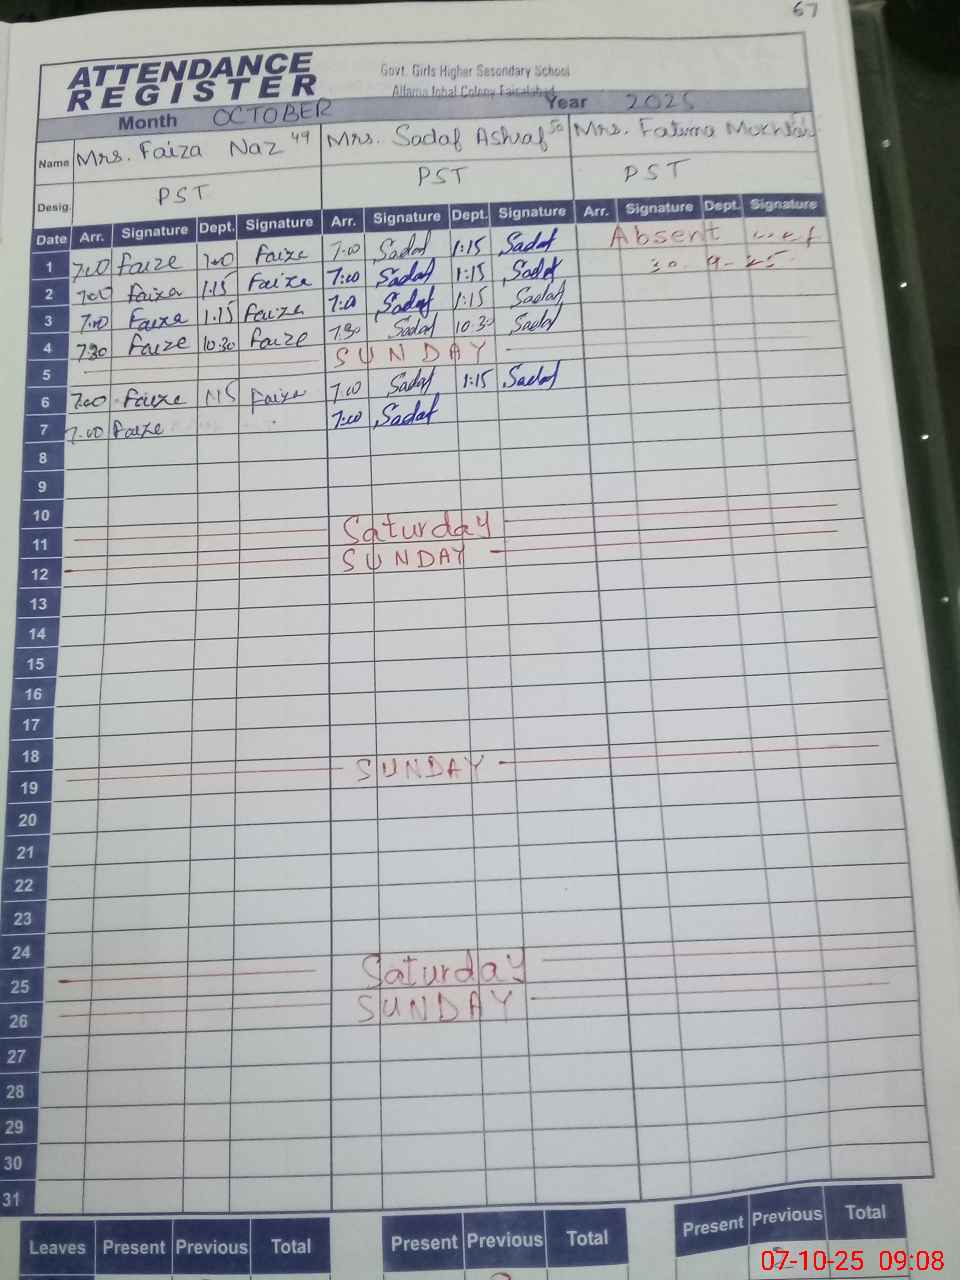 67
ATTENDANCE
REGISTER
Govt. Girls Higher Sesondary School
Allama Iqbal Colony Faisalabad
Month OCTOBER Year 2025
Name Mrs. Faiza Naz 49 Mrs. Sadaf Ashraf 50 Mrs. Fatima Mukhtar
Desig. PST PST PST
Date Arr. Signature Dept. Signature Arr. Signature Dept. Signature Arr. Signature Dept. Signature
1 7:00 Faize 1:00 Faize 7:00 Sadaf 1:15 Sadaf Absent w.e.f
2 7:00 Faiza 1:15 Faize 7:00 Sadaf 1:15 Sadaf 30-9-25
3 7:00 Faize 1:15 Faize 7:0 Sadaf 1:15 Sadaf
4 7:30 Faize 10:30 Faize 7:30 Sadaf 10:30 Sadaf
5 SUNDAY
6 7:00 Faize 1:15 Faize 7:00 Sadaf 1:15 Sadaf
7 7:00 Faize 7:00 Sadaf
8
9
10
11 Saturday
12 SUNDAY
13
14
15
16
17
18
19 SUNDAY
20
21
22
23
24
25 Saturday
26 SUNDAY
27
28
29
30
31
Leaves Present Previous Total Present Previous Total Present Previous Total
07-10-25 09:08